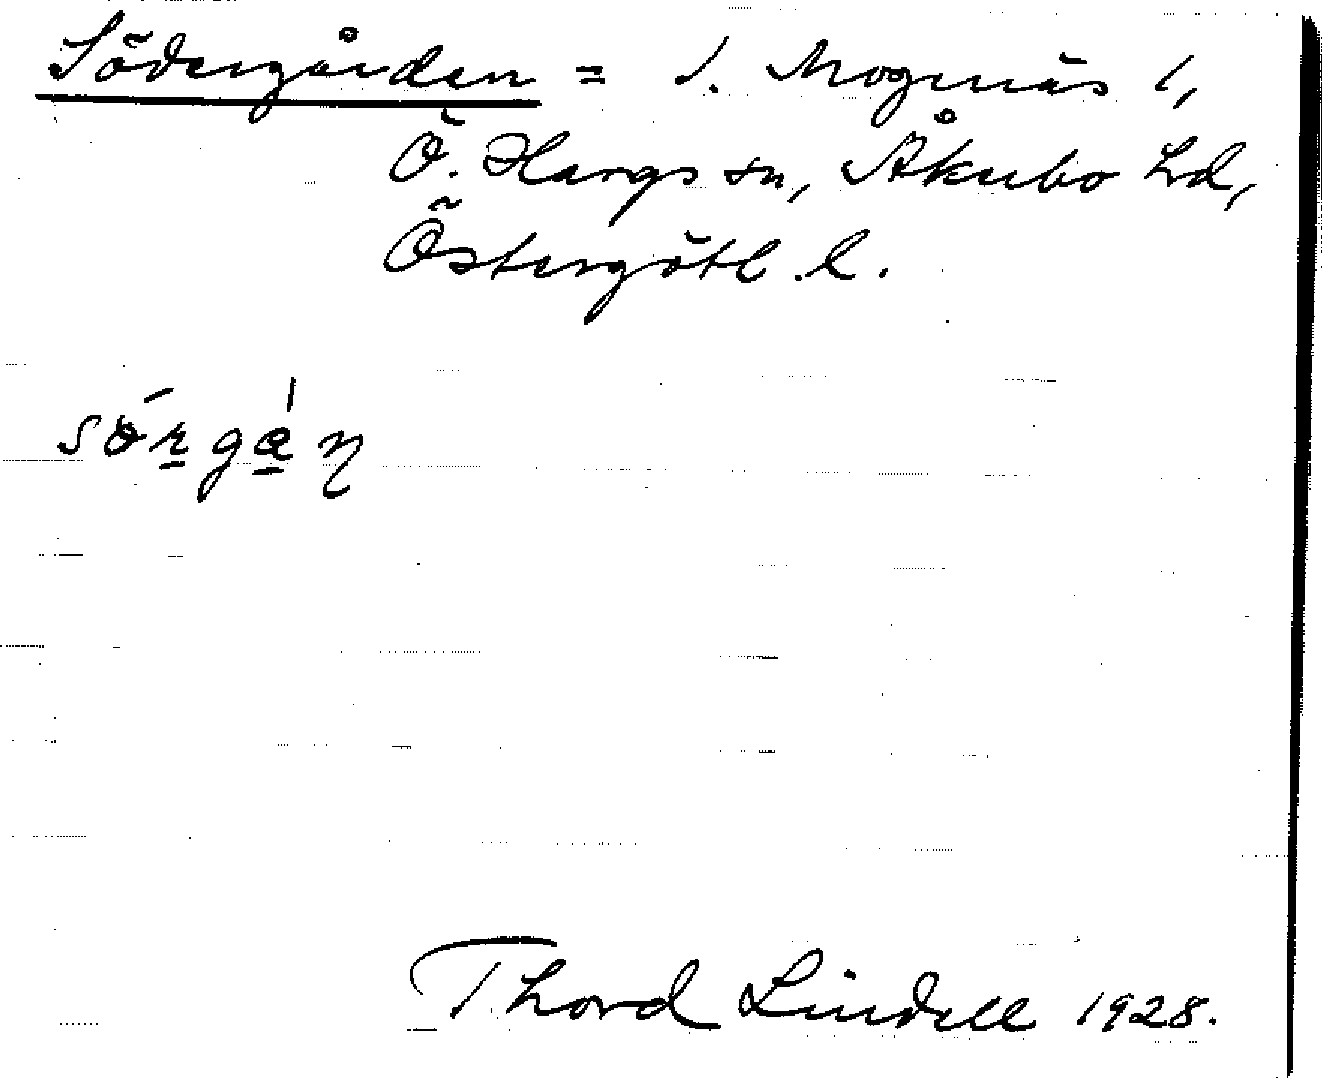 Södergården = 1. Mognäs 1,
Ö. Hargs sn, Åkerbo hd,
Östergötl. l.
Thord Lindell 1928.